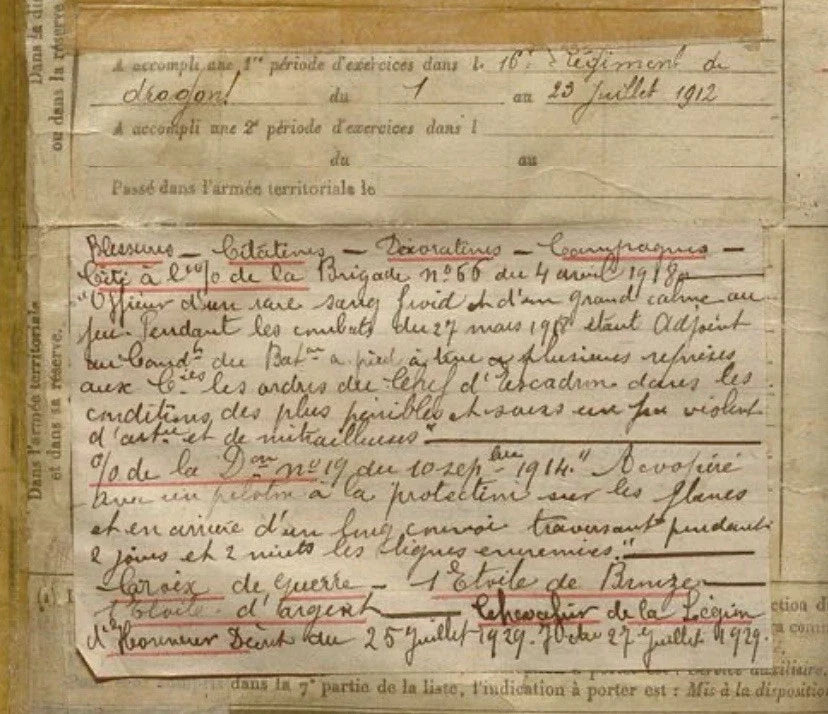 Dans la
ou dans la réserve
A accompli une 1re période d'exercices dans l 16e Régiment de
dragons du 1 au 23 Juillet 1912
A accompli une 2e période d'exercices dans l
du au
Passé dans l'armée territoriale le
Dans l'armée territoriale
et dans sa réserve.
Blessures — Citations — Décorations — Campagnes —
Cité à l'o/o de la Brigade no 66 du 4 avril 1918
"Officier d'un rare sang froid et d'un grand calme au
feu. Pendant les combats du 27 mars 1918 étant Adjoint
au Comdt du Baton a pied à tenu a plusieurs reprises
aux Cies les ordres du Chef d'Escadron dans les
conditions des plus pénibles et sous un feu violent
d'artie et de mitrailleuses"
o/o de la Don no 19 du 10 sepbre 1914. " A coopéré
avec un peloton à la protection sur les flancs
et en arrière d'un long convoi traversant pendant
2 jours et 2 nuits les lignes ennemies."
Croix de Guerre — 1 Etoile de Bronze
1 Etoile d'argent — Chevalier de la Légion
d'Honneur Décret du 25 Juillet 1929. JO du 27 Juillet 1929.
(1)
ction d
à porter est : Service auxiliaire,
dans la 7e partie de la liste, l'indication à porter est : Mis à la disposition